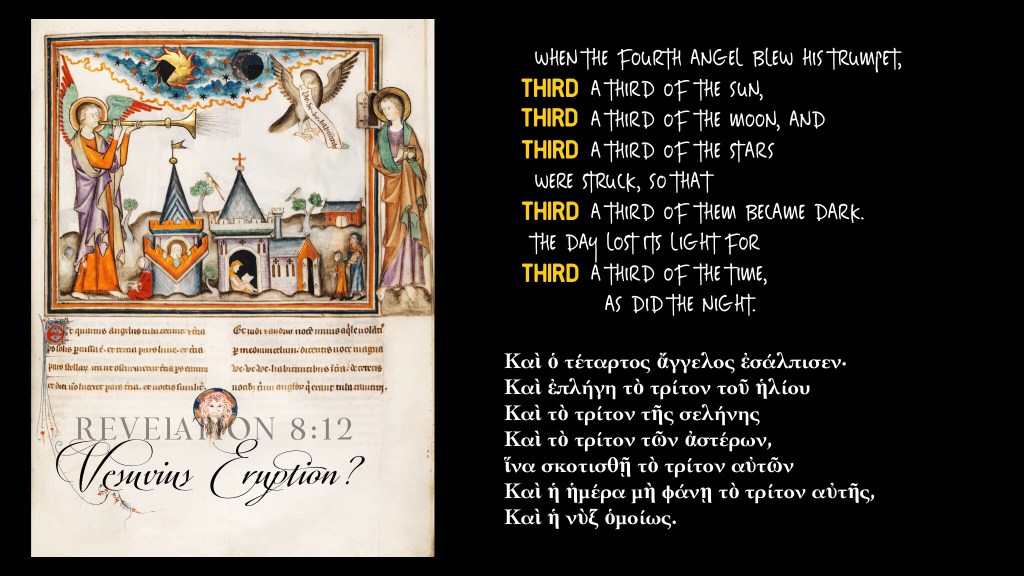 REVELATION 8:12
Vesuvius Eruption?
WHEN THE FOURTH ANGEL BLEW HIS TRUMPET,
THIRD A THIRD OF THE SUN,
THIRD A THIRD OF THE MOON, AND
THIRD A THIRD OF THE STARS
WERE STRUCK, SO THAT
THIRD A THIRD OF THEM BECAME DARK.
THE DAY LOST ITS LIGHT FOR
THIRD A THIRD OF THE TIME,
AS DID THE NIGHT.
Καὶ ὁ τέταρτος ἄγγελος ἐσάλπισεν·
Καὶ ἐπλήγη τὸ τρίτον τοῦ ἡλίου
Καὶ τὸ τρίτον τῆς σελήνης
Καὶ τὸ τρίτον τῶν ἀστέρων,
ἵνα σκοτισθῇ τὸ τρίτον αὐτῶν
Καὶ ἡ ἡμέρα μὴ φάνῃ τὸ τρίτον αὐτῆς,
Καὶ ἡ νὺξ ὁμοίως.